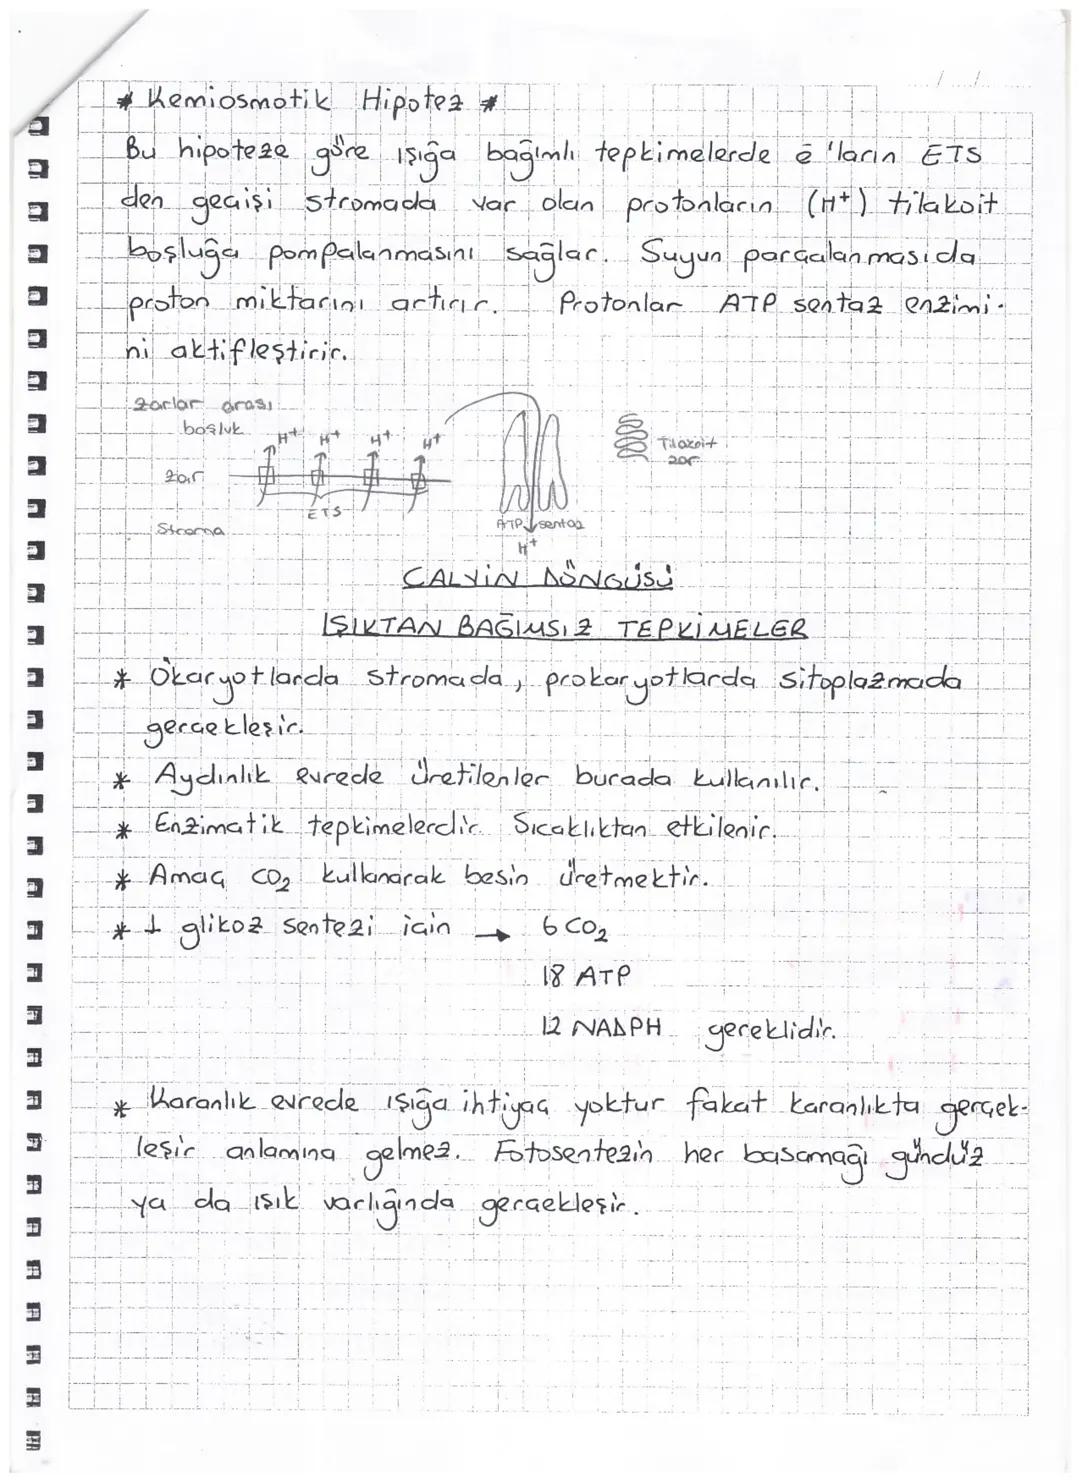 * Kemiosmotik Hipotez *
Bu hipoteze göre ışığa bağımlı tepkimelerde ē 'ların ETS
den geçişi stromada var olan protonların (H⁺) tilakoit
boşluğa pompalanmasını sağlar. Suyun parçalanmasıda
proton miktarını artırır. Protonlar ATP sentaz enzimi-
ni aktifleştirir.
zarlar arası
boşluk
H⁺ H⁺ H⁺ H⁺
Tilakoit
zar
zar
ETS
ATP sentaz
Stroma
H⁺
CALVİN DÖNGÜSÜ
IŞIKTAN BAĞIMSIZ TEPKİMELER
* Ökaryotlarda stromada, prokaryotlarda sitoplazmada
gerçekleşir.
* Aydınlık evrede üretilenler burada kullanılır.
* Enzimatik tepkimelerdir. Sıcaklıktan etkilenir.
* Amaç CO₂ kullanarak besin üretmektir.
* 1 glikoz sentezi için → 6 CO₂
18 ATP
12 NADPH gereklidir.
* Karanlık evrede ışığa ihtiyaç yoktur fakat karanlıkta gerçek-
leşir anlamına gelmez. Fotosentezin her basamağı gündüz
ya da ışık varlığında gerçekleşir.